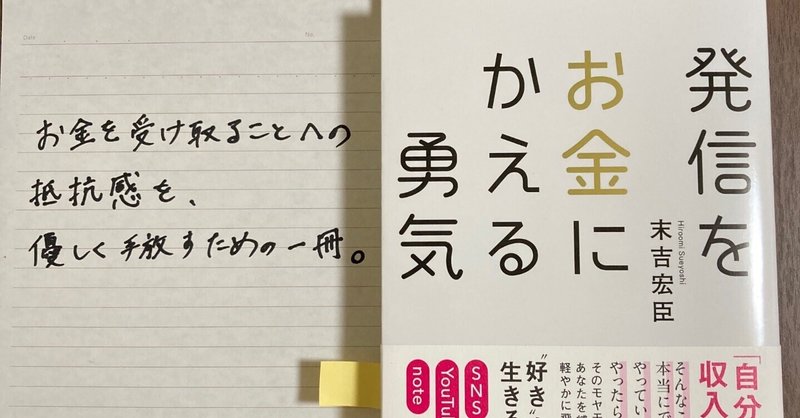 Date
No.
お金を受け取ることへの
抵抗感を、
優しく手放すための一冊。
発信を
お金に
かえる
勇気
Hiroomi Sueyoshi
末吉宏臣
「自分
収入
そんな
本当にで
やってい
やったら
そのモヤモ
あなたを
軽やかに
"好き"
生きる
SNS
YouTu
note